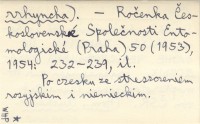 rrhyncha). – Ročenka Čes-
koslovenské Společnosti Ento-
mologické (Praha) 50 (1953),
1954. 232–239, il.
Po czesku ze streszczeniem
rosyjskim i niemieckim.